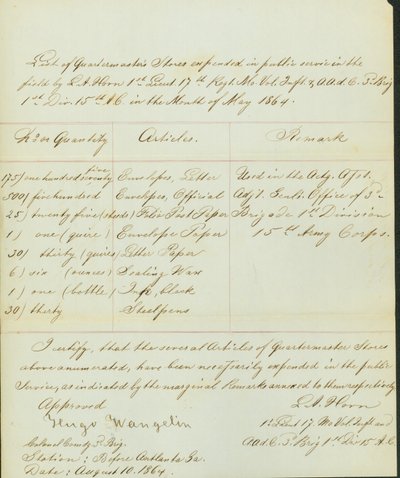 List of Quartermaster's Stores expended in public service in the
field by L.A. Horn 1st Lieut 17th Regt. Mo. Vol. Inft. & A.A.d.C. 3d Brig
1st Div. 15th A.C. in the Month of May 1864.
No or Quantity Articles. Remark
175) one hundred seventy five Envelopes, Letter Used in the Actg. Asst.
500) five hundred Envelopes, Official Adjt. Genls. Office of 3d
25) twenty five (sheets) Folio Post Paper Brigade 1st Division
1) one (quire) Envelope Paper 15th Army Corps.
30) thirty (quires) Letter Paper
6) six (ounces) Sealing Wax
1) one (bottle) Ink, black
30) thirty Steelpens
I certify, that the several Articles of Quartermaster Stores
above enumerated, have been necessarily expended in the public
Service, as indicated by the marginal Remarks annexed to them respectively.
Approved L.A. Horn
Hugo Wangelin 1st Lieut 17. Mo Vol. Inft and
Colonel Comdg 3. Brig. A.a.d.C. 3. Brig 1st Div 15 A.C.
Station: Before Atlanta Ga.
Date: August 10. 1864.